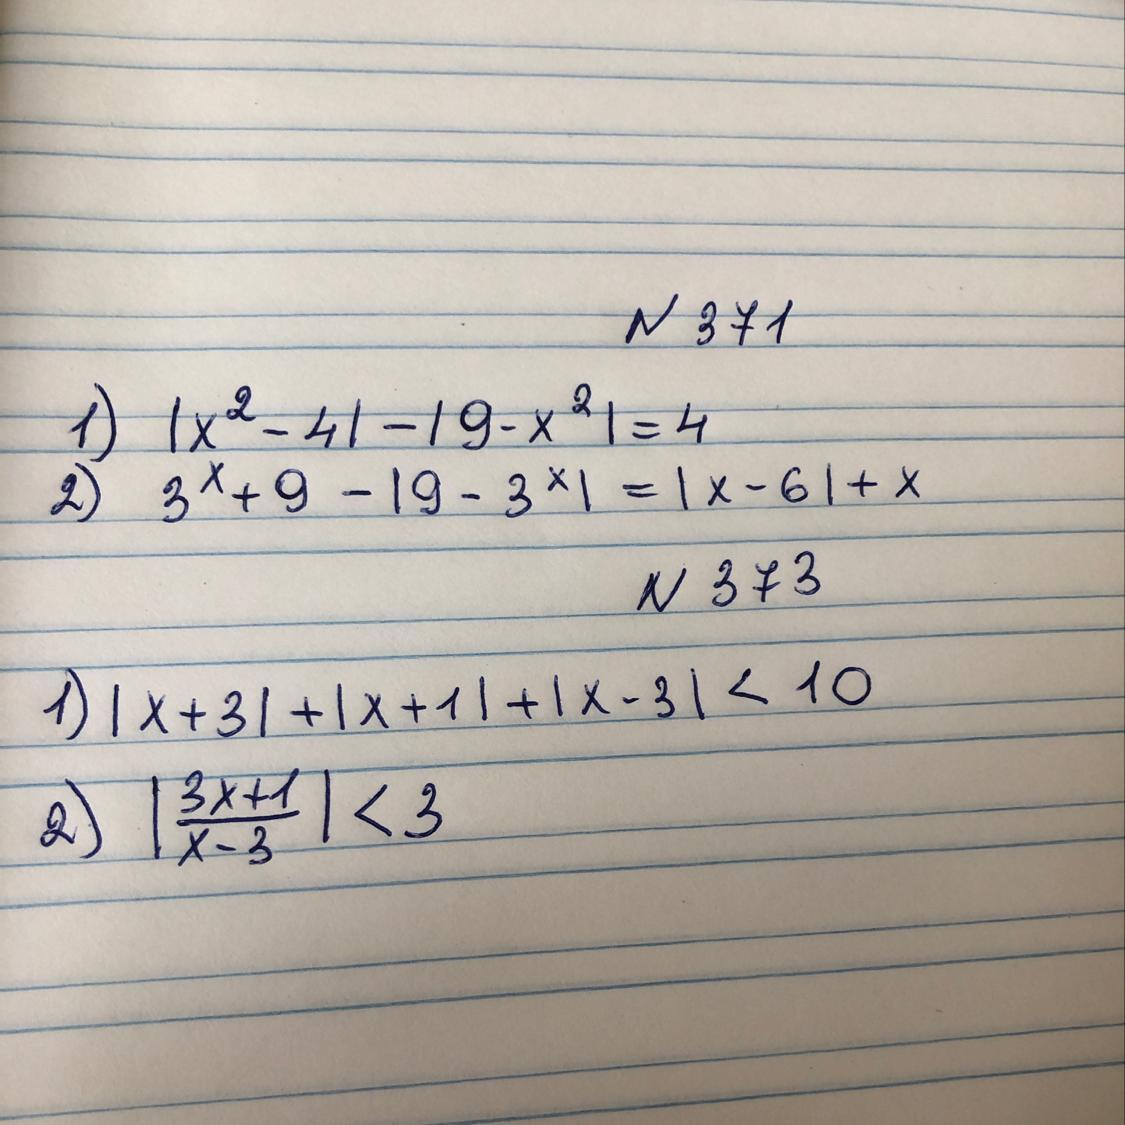 N 371
1) |x² - 4| - |9 - x²| = 4
2) 3ˣ + 9 - |9 - 3ˣ| = |x - 6| + x
N 373
1) |x + 3| + |x + 1| + |x - 3| < 10
2) |(3x+1)/(x-3)| < 3